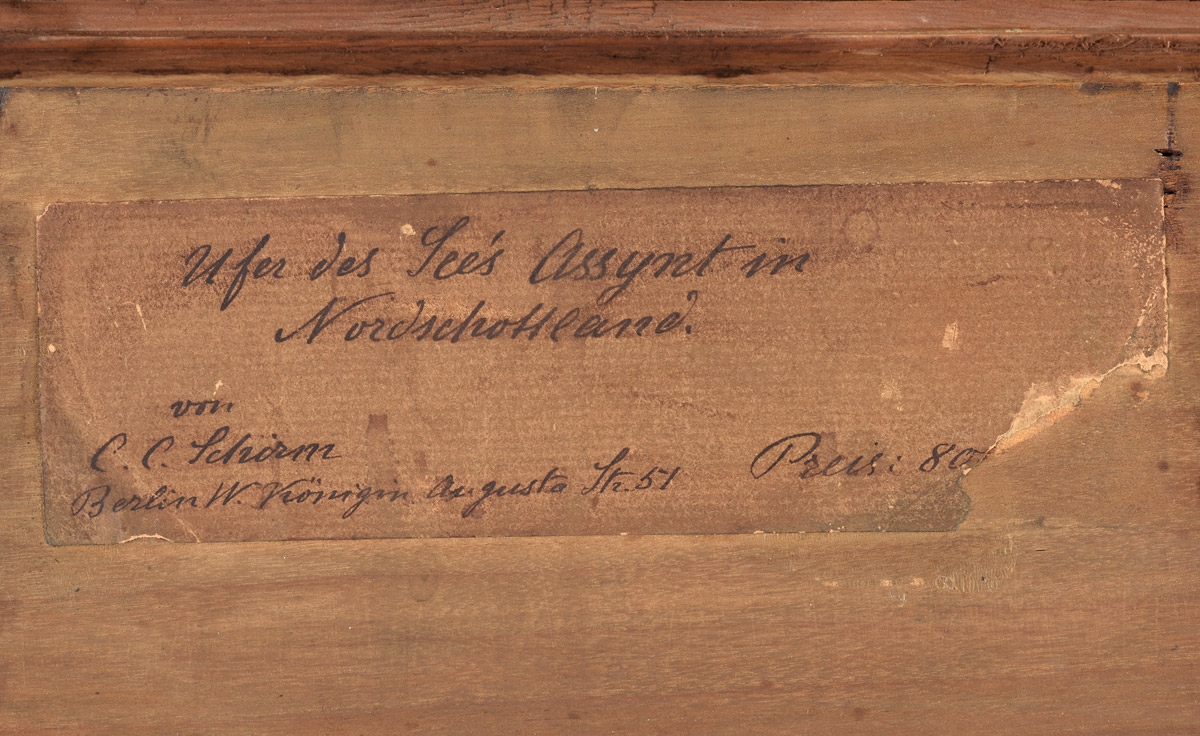 Ufer des See's Assynt in
Nordschottland.
von
C. C. Schirm
Berlin W. Königin Augusta Str. 51
Preis: 80